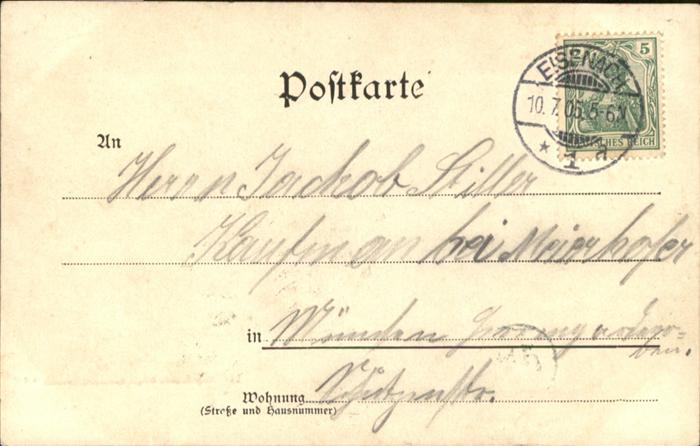 Postkarte
5
DEUTSCHES REICH
EISENACH
10.7.05. 5-6N
* 1 a
An
Herrn Jackob Stiller
Kaufmann bei Meierhofer
in München
Wohnung Schützenstr.
(Straße und Hausnummer)